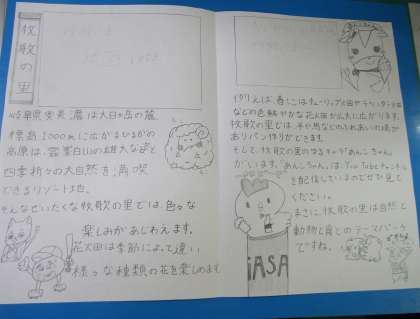 牧歌の里
岐阜県奥美濃は大日ヶ岳の麓、
標高1000mに広がるひるがの
高原は、霊峯白山の雄大な姿と
四季折々の大自然を満喫
できるリゾート地。
そんなぜいたくな牧歌の里では、色々な
楽しみがあじわえます。
花火田は季節によって違い
様々な種類の花を楽しめます
春にはチューリップ
などの色鮮やかな花火田が広大に広がります。
牧歌の里では、羊や馬などのふれあいの場が
ありパン作りができます。
そして牧歌の里のゆるキャラ「あんこちゃん」
がいます。あんこちゃんは、You Tubeチャンネル
を配信しているのでぜひ見て
ください。
まさに、牧歌の里は自然と
動物と食とのテーマパーク
ですね。
iASA